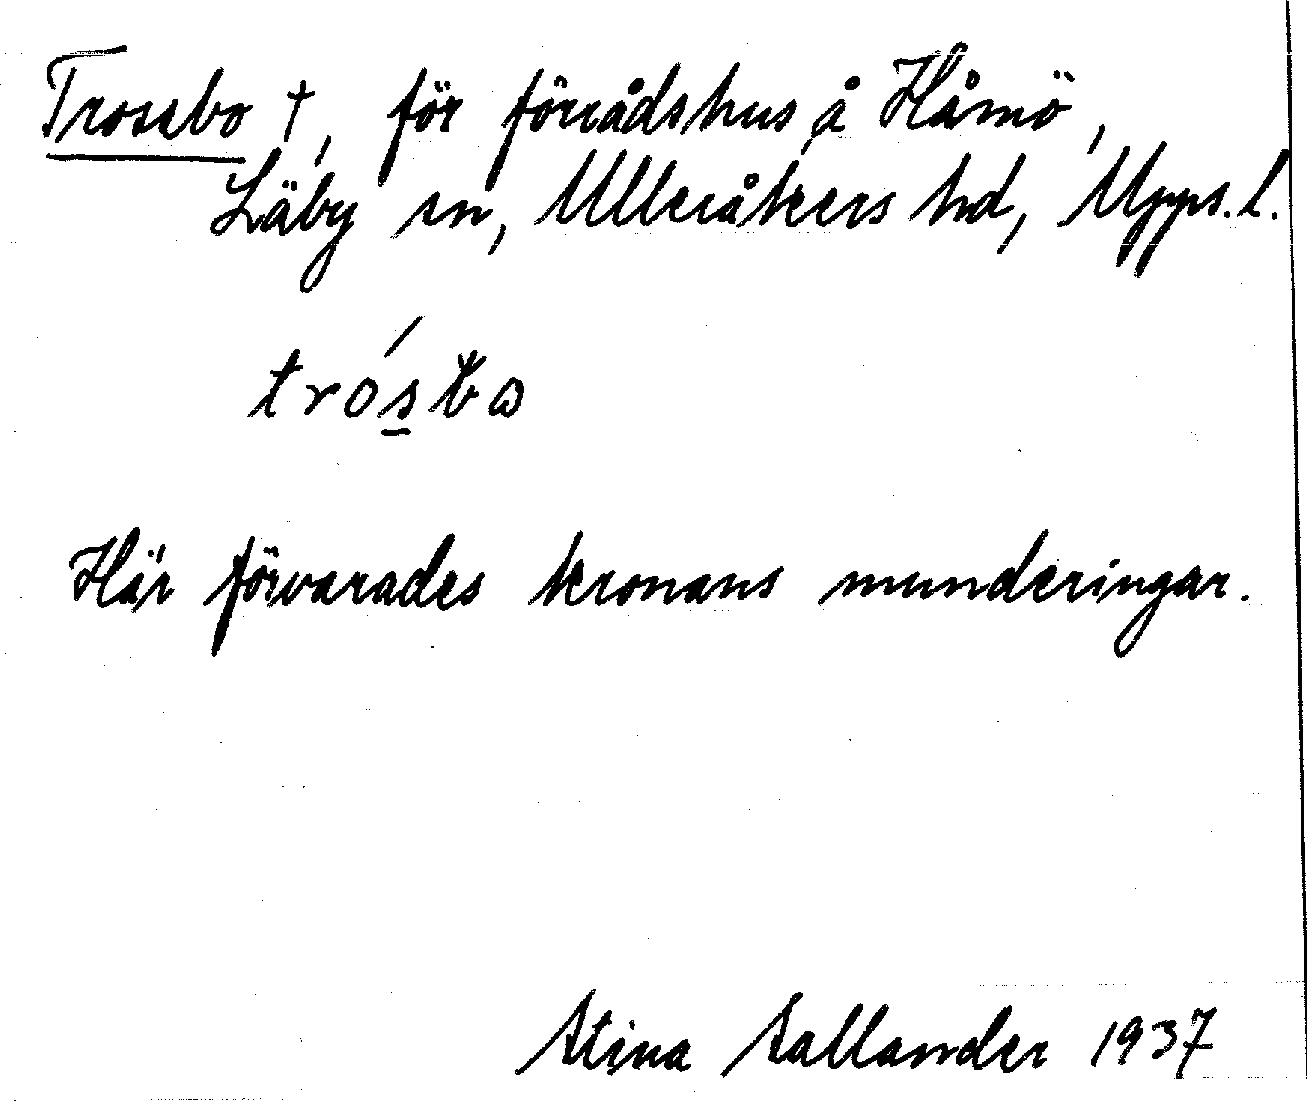 Trossbo †, för förrådshus å Håmö,
Läby sn, Ulleråkers hd, Upps. l.
Här förvarades kronans munderingar.
Stina Sallander 1937